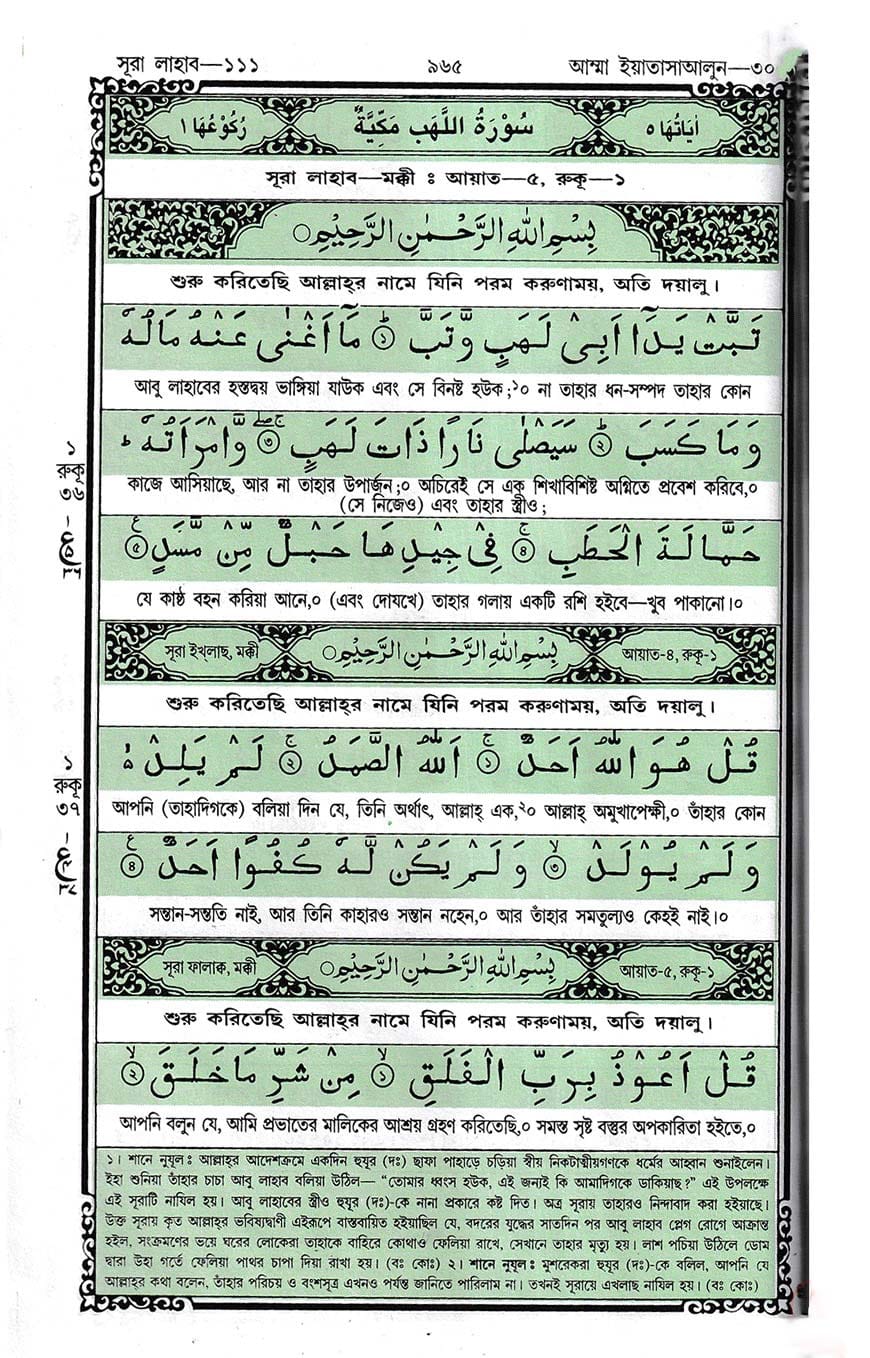 সূরা লাহাব—১১১ ৯৬৫ আম্মা ইয়াতাসাআলুন—৩০
اٰیَاتُهَا ٥ سُوْرَةُ اللَّهَبِ مَكِّيَّةٌ رُكُوْعُهَا ١
সূরা লাহাব—মক্কী ঃ আয়াত—৫, রুকূ—১
بِسْمِ اللهِ الرَّحْمٰنِ الرَّحِيْمِ○
শুরু করিতেছি আল্লাহ্‌র নামে যিনি পরম করুণাময়, অতি দয়ালু।
تَبَّتْ يَدَآ اَبِىْ لَهَبٍ وَّتَبَّ ① مَآ اَغْنٰى عَنْهُ مَالُهٗ
আবু লাহাবের হস্তদ্বয় ভাঙ্গিয়া যাউক এবং সে বিনষ্ট হউক;১০ না তাহার ধন-সম্পদ তাহার কোন
وَمَا كَسَبَ ② سَيَصْلٰى نَارًا ذَاتَ لَهَبٍ ③ وَّامْرَاَتُهٗ
কাজে আসিয়াছে, আর না তাহার উপার্জন;০ অচিরেই সে এক শিখাবিশিষ্ট অগ্নিতে প্রবেশ করিবে,০
(সে নিজেও) এবং তাহার স্ত্রীও;
১
রুকূ
৩৬
حَمَّالَةَ الْحَطَبِ ④ فِىْ جِيْدِهَا حَبْلٌ مِّنْ مَّسَدٍ ⑤
যে কাষ্ঠ বহন করিয়া আনে,০ (এবং দোযখে) তাহার গলায় একটি রশি হইবে—খুব পাকানো।০
সূরা ইখ্‌লাছ, মক্কী بِسْمِ اللهِ الرَّحْمٰنِ الرَّحِيْمِ○ আয়াত-৪, রুকূ-১
শুরু করিতেছি আল্লাহ্‌র নামে যিনি পরম করুণাময়, অতি দয়ালু।
قُلْ هُوَ اللهُ اَحَدٌ ① اَللهُ الصَّمَدُ ② لَمْ يَلِدْ
আপনি (তাহাদিগকে) বলিয়া দিন যে, তিনি অর্থাৎ, আল্লাহ্ এক,২০ আল্লাহ্ অমুখাপেক্ষী,০ তাঁহার কোন
১
রুকূ
৩৭
وَلَمْ يُوْلَدْ ③ وَلَمْ يَكُنْ لَّهٗ كُفُوًا اَحَدٌ ④
সন্তান-সন্ততি নাই, আর তিনি কাহারও সন্তান নহেন,০ আর তাঁহার সমতুল্যও কেহই নাই।০
সূরা ফালাক্ব, মক্কী بِسْمِ اللهِ الرَّحْمٰنِ الرَّحِيْمِ○ আয়াত-৫, রুকূ-১
শুরু করিতেছি আল্লাহ্‌র নামে যিনি পরম করুণাময়, অতি দয়ালু।
قُلْ اَعُوْذُ بِرَبِّ الْفَلَقِ ① مِنْ شَرِّ مَا خَلَقَ ②
আপনি বলুন যে, আমি প্রভাতের মালিকের আশ্রয় গ্রহণ করিতেছি,০ সমস্ত সৃষ্ট বস্তুর অপকারিতা হইতে,০
১। শানে নুযূল ঃ আল্লাহর আদেশক্রমে একদিন হুযূর (দঃ) ছাফা পাহাড়ে চড়িয়া স্বীয় নিকটাত্মীয়গণকে ধর্মের আহ্বান শুনাইলেন।
ইহা শুনিয়া তাঁহার চাচা আবু লাহাব বলিয়া উঠিল— “তোমার ধ্বংস হউক, এই জন্যই কি আমাদিগকে ডাকিয়াছ?” এই উপলক্ষে
এই সূরাটি নাযিল হয়। আবু লাহাবের স্ত্রীও হুযূর (দঃ)-কে নানা প্রকারে কষ্ট দিত। অত্র সূরায় তাহারও নিন্দাবাদ করা হইয়াছে।
উক্ত সূরায় কৃত আল্লাহর ভবিষ্যদ্বাণী এইরূপে বাস্তবায়িত হইয়াছিল যে, বদরের যুদ্ধের সাতদিন পর আবু লাহাব প্লেগ রোগে আক্রান্ত
হইল, সংক্রমণের ভয়ে ঘরের লোকেরা তাহাকে বাহিরে কোথাও ফেলিয়া রাখে, সেখানে তাহার মৃত্যু হয়। লাশ পচিয়া উঠিলে ডোম
দ্বারা উহা গর্তে ফেলিয়া পাথর চাপা দিয়া রাখা হয়। (বঃ কোঃ) ২। শানে নুযূল ঃ মুশরেকরা হুযূর (দঃ)-কে বলিল, আপনি যে
আল্লাহর কথা বলেন, তাঁহার পরিচয় ও বংশসূত্র এখনও পর্যন্ত জানিতে পারিলাম না। তখনই সূরায়ে এখলাছ নাযিল হয়। (বঃ কোঃ)